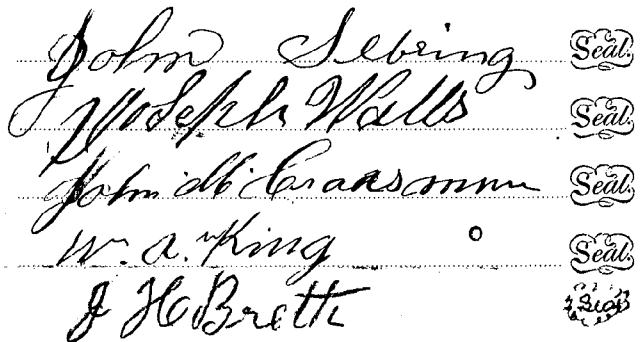 John Sebring Seal.
Joseph Walls Seal.
John M. Seal.
W. A. King Seal.
J H Brett Seal